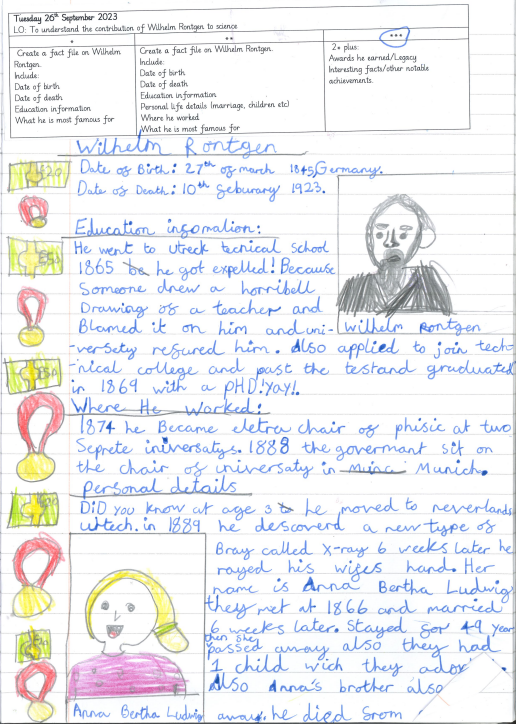 Tuesday 26th September 2023
LO: To understand the contribution of Wilhelm Rontgen to science
*
Create a fact file on Wilhelm
Rontgen.
Include:
Date of birth
Date of death
Education information
What he is most famous for
**
Create a fact file on Wilhelm Rontgen.
Include:
Date of birth
Date of death
Education information
Personal life details (marriage, children etc)
Where he worked
What he is most famous for
***
2* plus:
Awards he earned/Legacy
Interesting facts/other notable
achievements.
Wilhelm Rontgen
Date of Birth: 27th of march 1845, Germany.
Date of Death: 10th feburary 1923.
Education infomation:
He went to utreck tecnical school
1865 he got expelled! Because
Someone drew a horribell
Drawing of a teacher and
Blamed it on him and uni-
-versety refured him. Also applied to join tech-
-nical college and past the test and graduated
in 1869 with a pHD! Yay!.
Wilhelm rontgen
Where He Worked:
1874 he Became eletra chair of phisic at two
Seprete iniversatys. 1888 the govermant sit on
the chair of iniversaty in Munich.
personal details
DiD you know at age 3 he moved to neverlands
in 1889 he descoverd a new type of
Bray called X-ray 6 weeks later he
rayed his wifes hand. Her
name is Anna Bertha Ludwig
they met at 1866 and married
6 weeks later. Stayed for 49 year
then she
passed away also they had
1 child wich they
Also Anna's brother also
away. he died from
Anna Bertha Ludwig